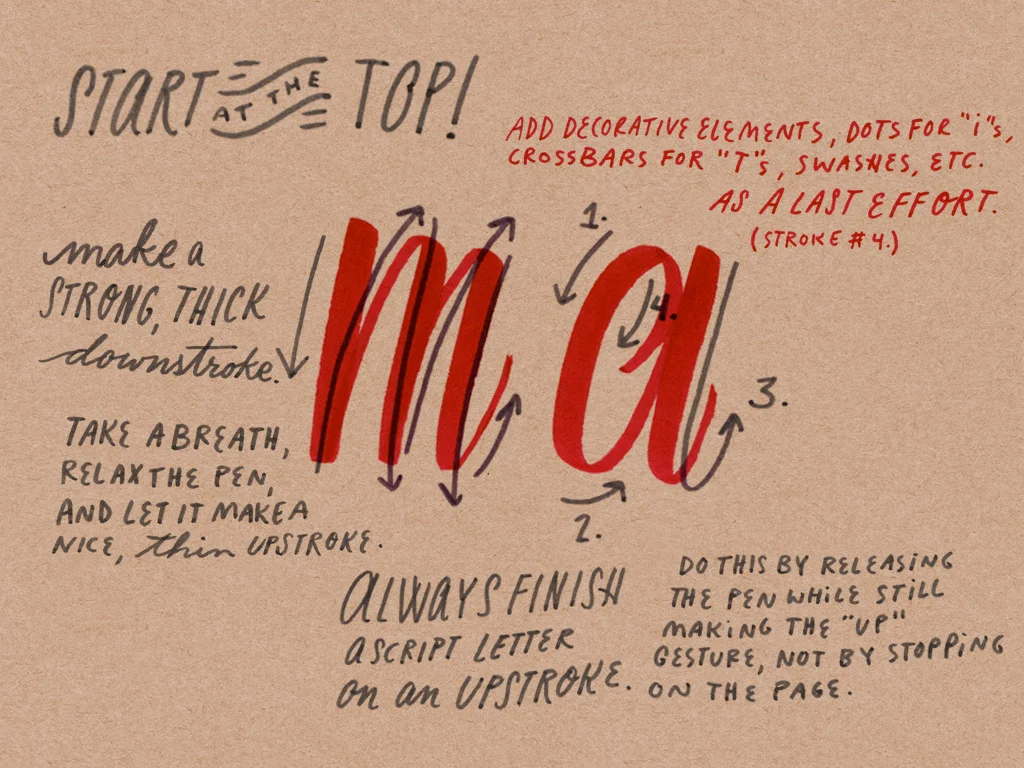 START AT THE TOP!
ADD DECORATIVE ELEMENTS, DOTS FOR "i"s,
CROSSBARS FOR "T"s, SWASHES, ETC.
AS A LAST EFFORT.
(STROKE #4.)
make a
STRONG, THICK
downstroke.
m
a
1.
4.
3.
2.
TAKE A BREATH,
RELAX THE PEN,
AND LET IT MAKE A
NICE, thin UPSTROKE.
ALWAYS FINISH
A SCRIPT LETTER
on an UPSTROKE.
DO THIS BY RELEASING
THE PEN WHILE STILL
MAKING THE "UP"
GESTURE, NOT BY STOPPING
ON THE PAGE.